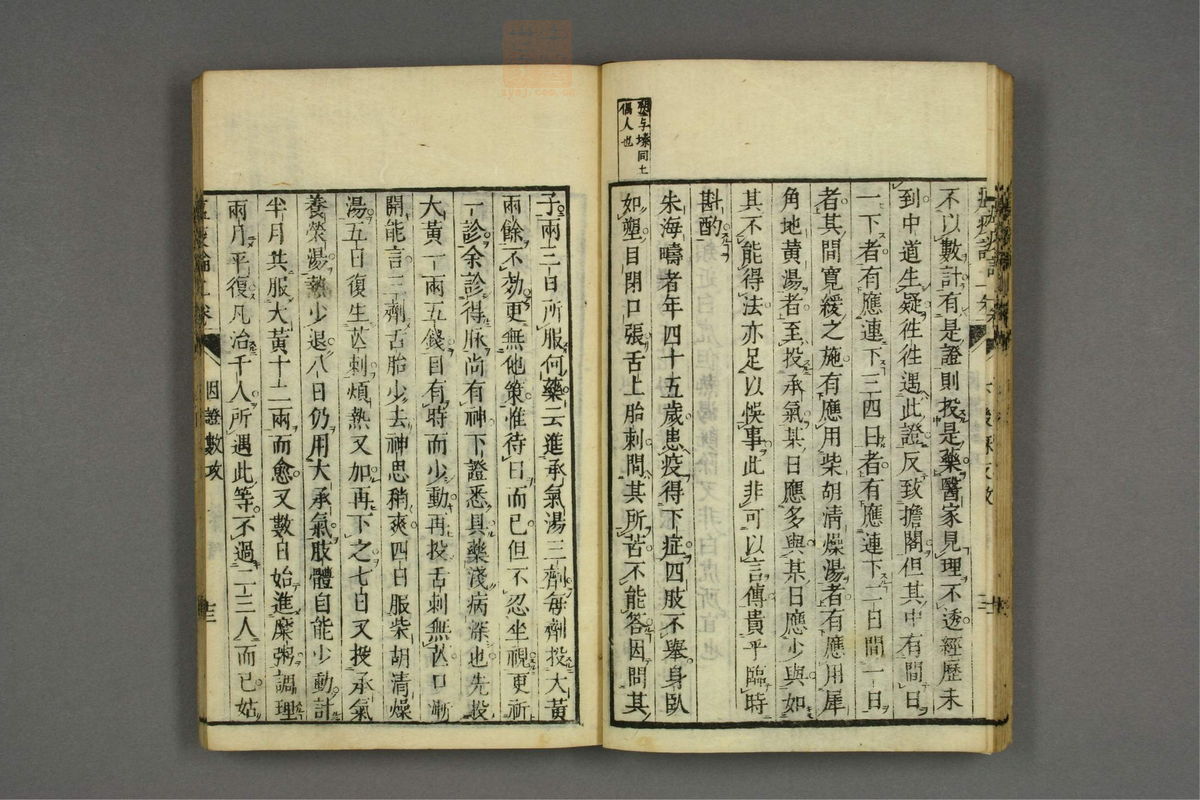 塑与塐同土
偶人也
不以數計有是證則投是藥醫家見理不透經歷未
到中道生疑徃徃遇此證反致擔閣但其中有間日
一下者有應連下三四日者有應連下二日間一日
者其間寛緩之施有應用柴胡清燥湯者有應用犀
角地黄湯者至投承氣某日應多與某日應少與如
其不能得法亦足以悞事此非可以言傳貴乎臨時
斟酌
朱海疇者年四十五歲患疫得下症四肢不舉身臥
如塑目閉口張舌上胎刺問其所苦不能答因問其
子兩三日所服何藥云進承氣湯三劑每劑投大黄
兩餘不効更無他策惟待日而已但不忍坐視更祈
一診余診得脉尚有神下證悉具藥淺病深也先投
大黄一兩五錢目有時而少動再投舌刺無芒口漸
開能言三劑舌胎少去神思稍爽四日服柴胡清燥
湯五日復生芒刺煩熱又加再下之七日又投承氣
養榮湯熱少退八日仍用大承氣肢體自能少動計
半月共服大黄十二兩而愈又數日始進糜粥調理
兩月平復凡治千人所遇此等不過二三人而已姑
因證數攻